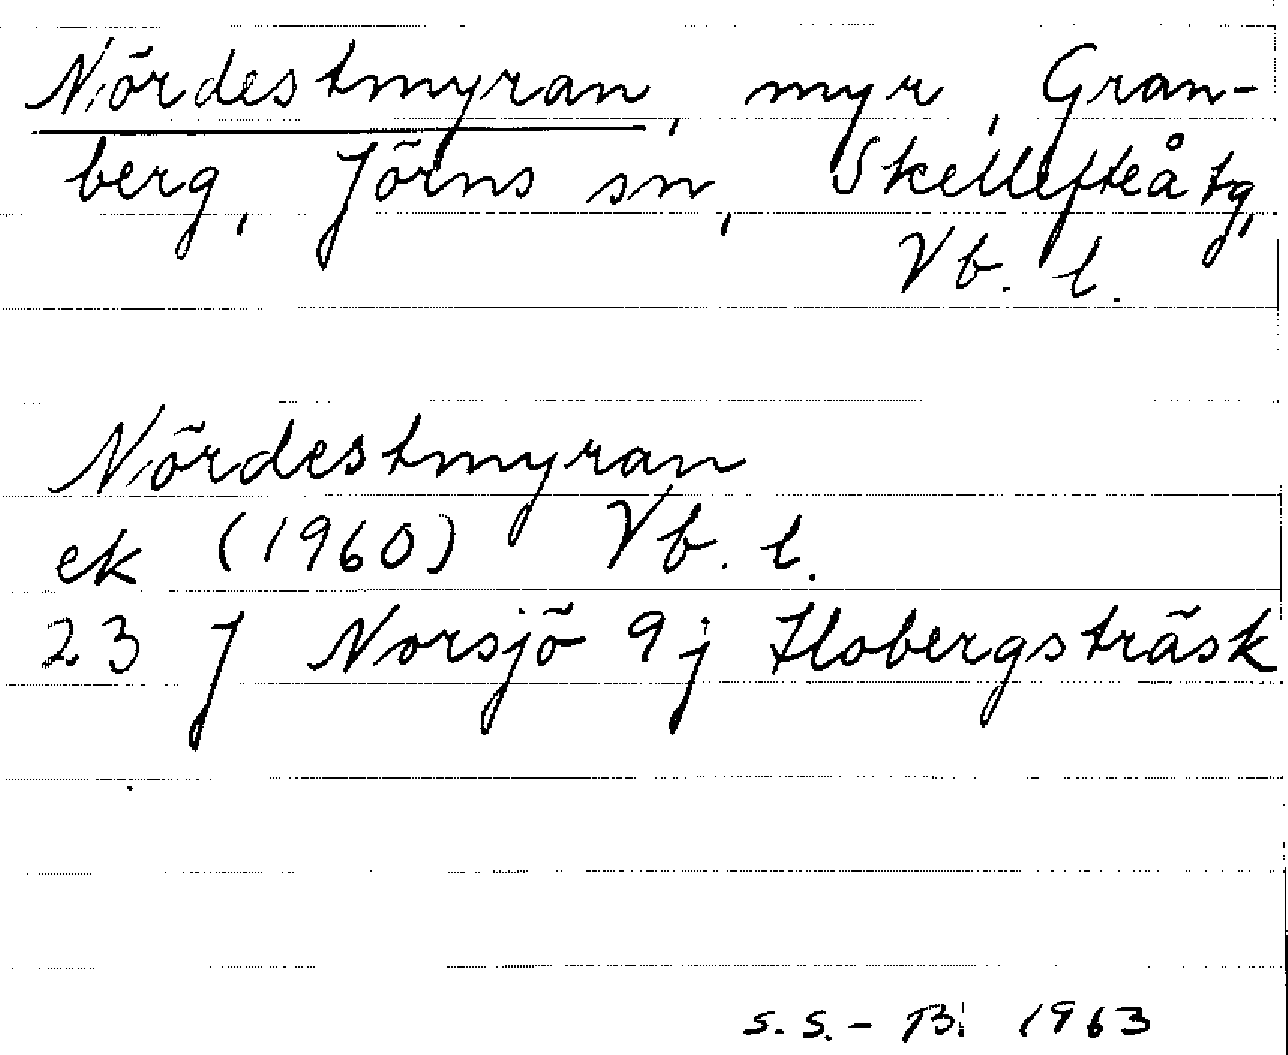 Nördestmyran, myr, Gran-
berg, Jörns sn, Skellefteå tg,
Vb. l.
Nördestmyran
ek (1960) Vb. l.
23 J Norsjö 9j Flobergsträsk
s.s. - B. 1963